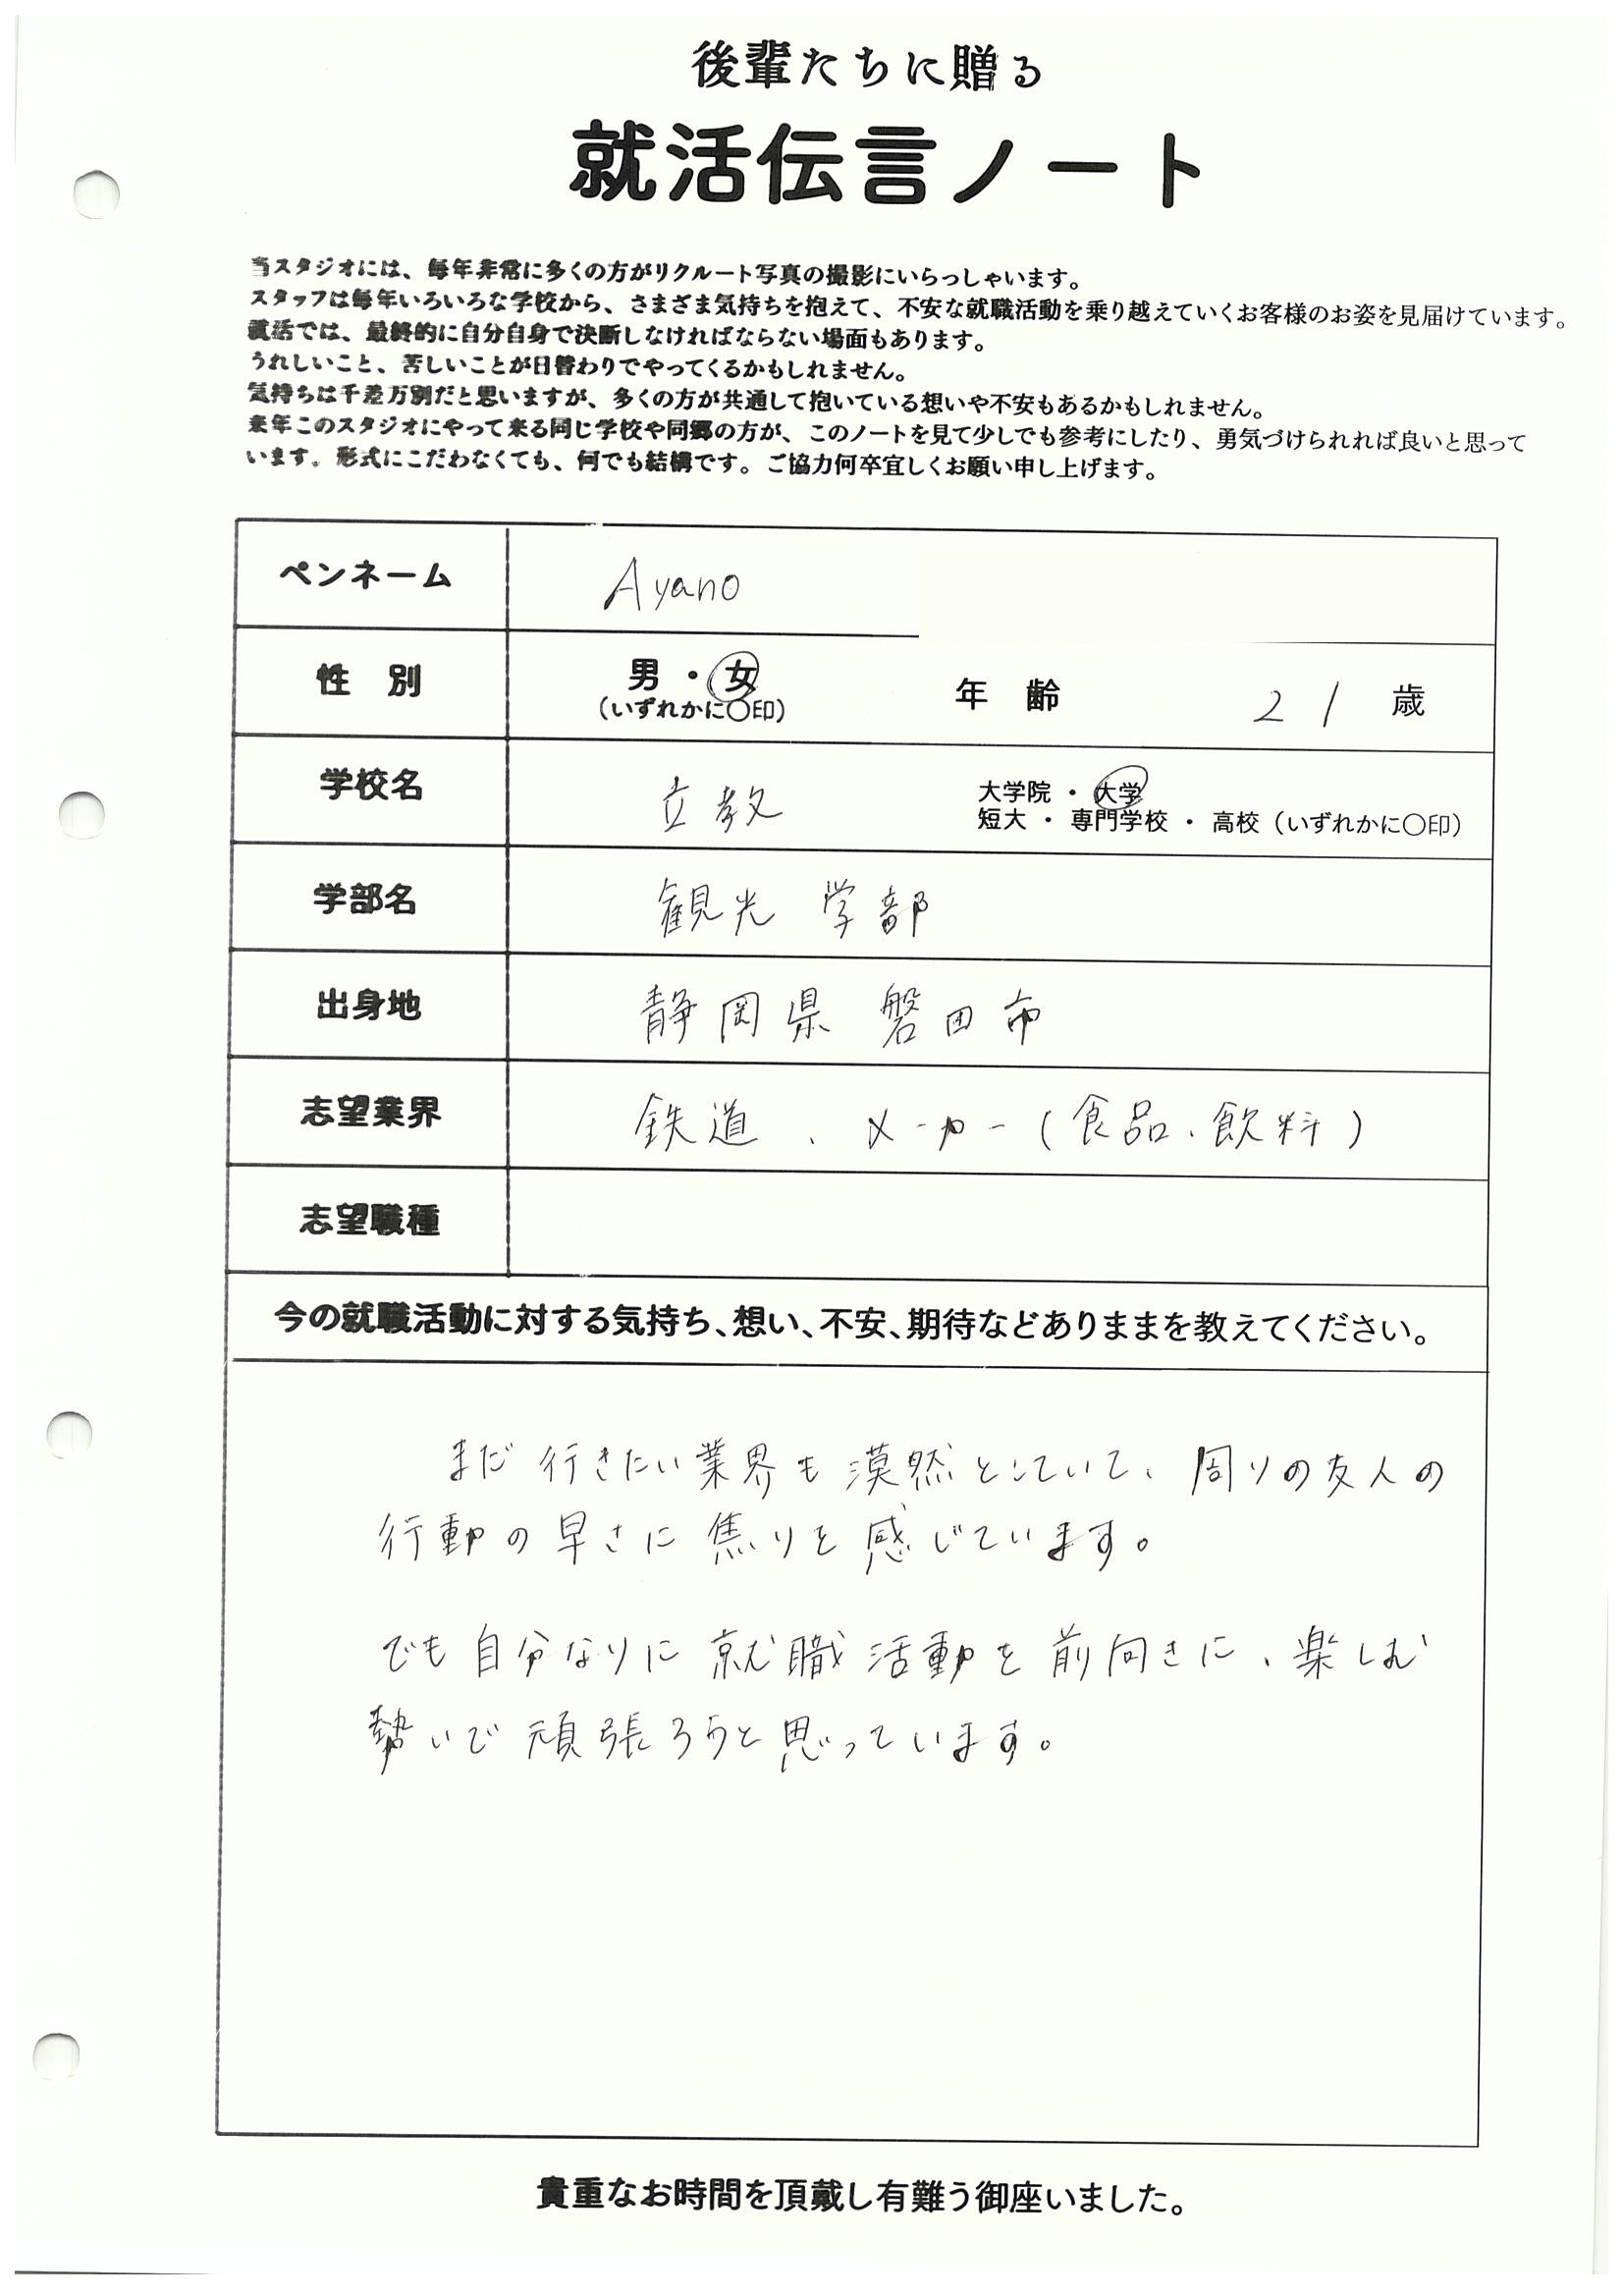 後輩たちに贈る
就活伝言ノート
当スタジオには、毎年非常に多くの方がリクルート写真の撮影にいらっしゃいます。
スタッフは毎年いろいろな学校から、さまざま気持ちを抱えて、不安な就職活動を乗り越えていくお客様のお姿を見届けています。
就活では、最終的に自分自身で決断しなければならない場面もあります。
うれしいこと、苦しいことが日替わりでやってくるかもしれません。
気持ちは千差万別だと思いますが、多くの方が共通して抱いている想いや不安もあるかもしれません。
来年このスタジオにやって来る同じ学校や同郷の方が、このノートを見て少しでも参考にしたり、勇気づけられれば良いと思って
います。形式にこだわなくても、何でも結構です。ご協力何卒宜しくお願い申し上げます。
ペンネーム Ayano
性別 男・女 年齢 21 歳
(いずれかに〇印)
学校名 立教 大学院・大学
短大・専門学校・高校(いずれかに〇印)
学部名 観光学部
出身地 静岡県磐田市
志望業界 鉄道、メーカー(食品、飲料)
志望職種
今の就職活動に対する気持ち、想い、不安、期待などありままを教えてください。
まだ行きたい業界も漠然としていて、周りの友人の
行動の早さに焦りを感じています。
でも自分なりに就職活動を前向きに、楽しむ
勢いで頑張ろうと思っています。
貴重なお時間を頂戴し有難う御座いました。